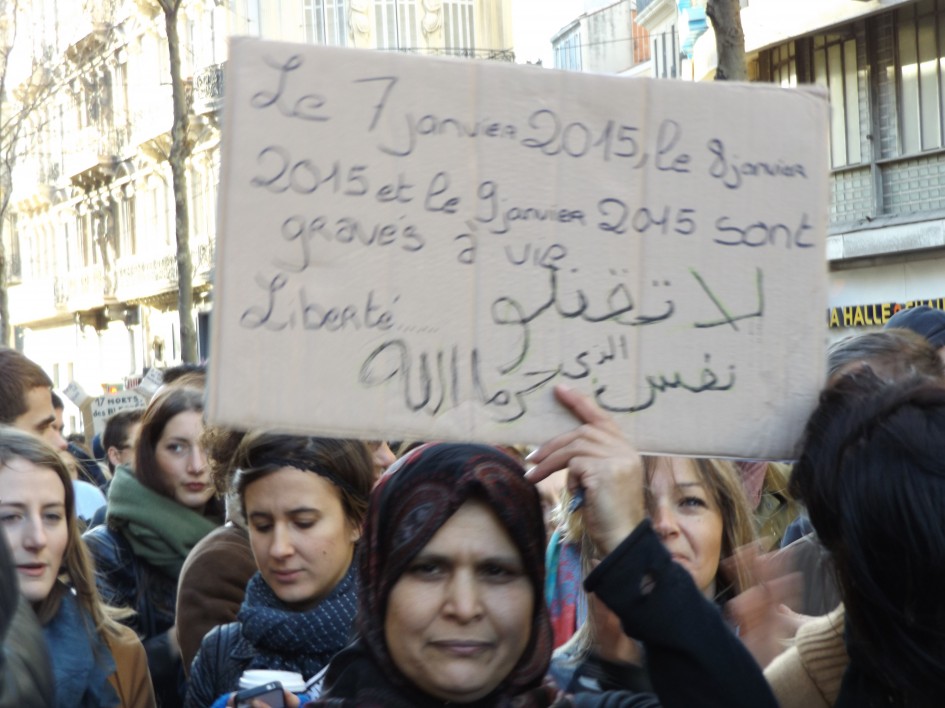 Le 7 janvier 2015, le 8 janvier
2015 et le 9 janvier 2015 sont
gravés à vie
Liberté......
لا تقتلو
نفس الذي حرما الله
17 MORTS
des BLESSÉS
A HALLE